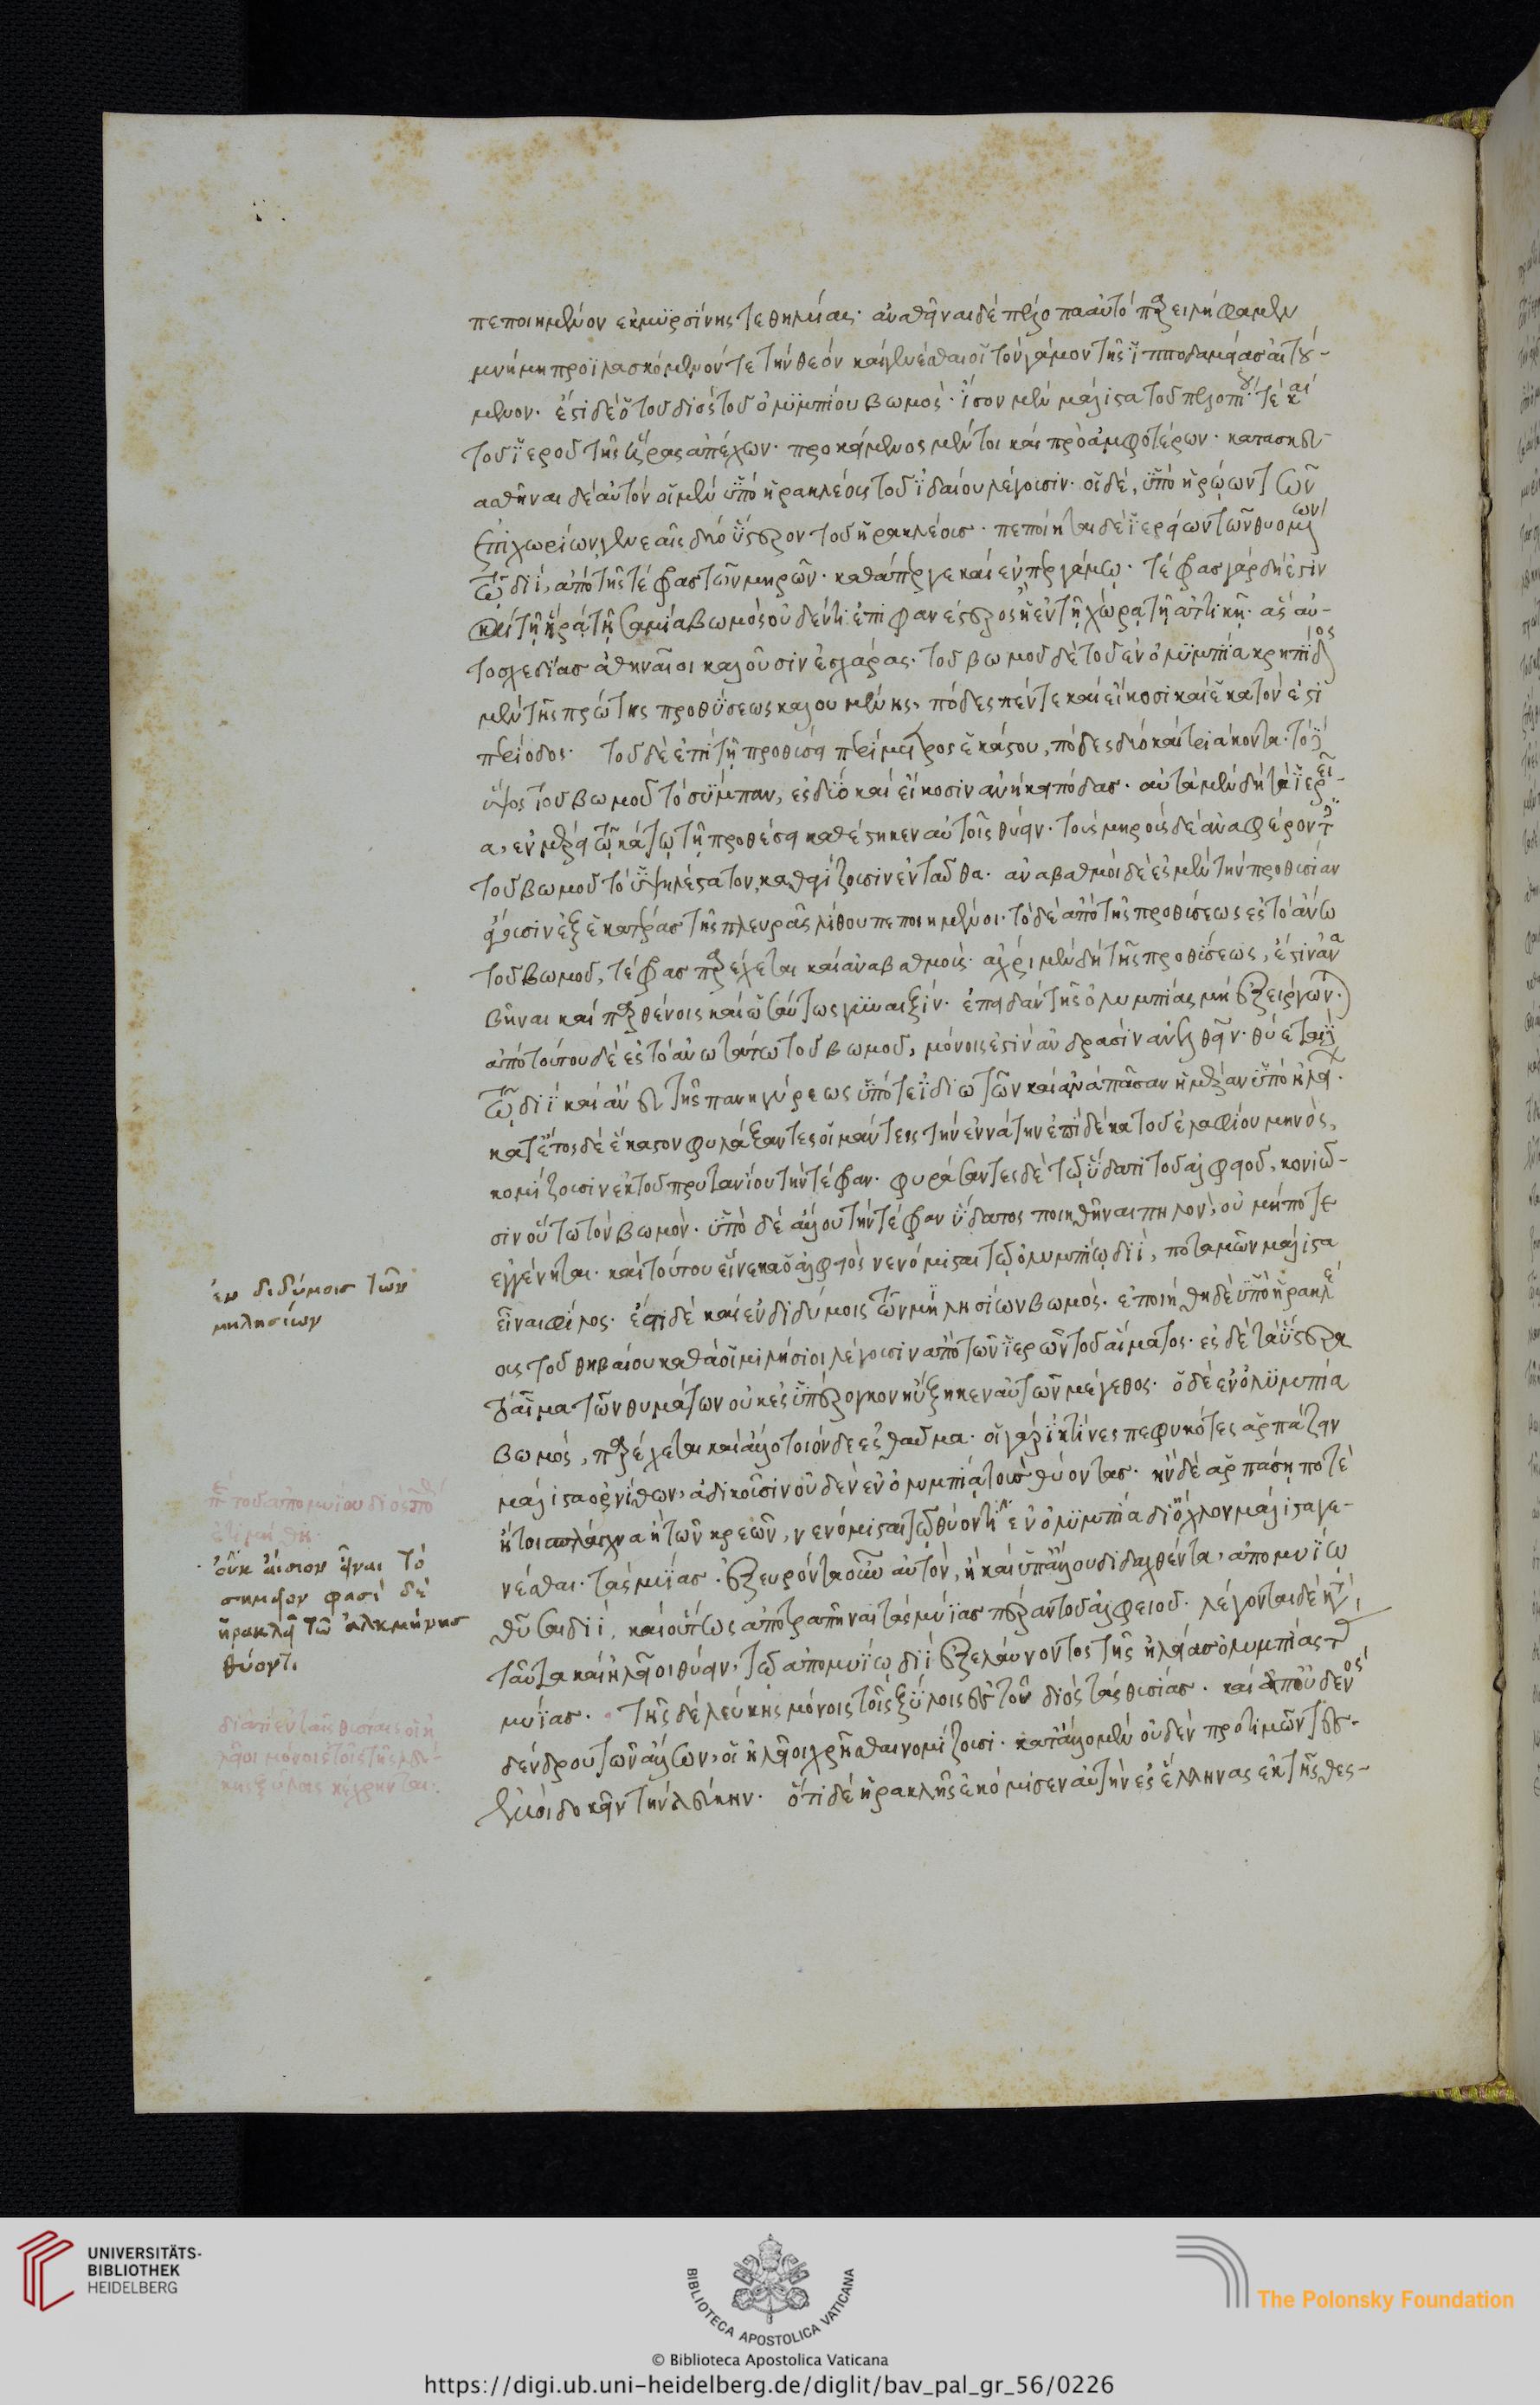 πεποιημένον ἐκ μυρσίνης τεθηλυίας· ἀναθῆναι δὲ πέλοπα αὐτὸ παρειλήφαμεν
μνήμη προϊλασκόμενόν τε τὴν θεὸν καὶ γενέσθαι οἱ τὸν γάμον τῆς ἱπποδαμείας αἰτού-
μενον. ἔστι δὲ ὁ τοῦ διὸς τοῦ ὀλυμπίου βωμὸς· ἴσον μὲν μάλιστα τοῦ πελοπίου τε καὶ
τοῦ ἱεροῦ τῆς ἥρας ἀπέχων· προκείμενος μέντοι καὶ πρὸ ἀμφοτέρων· κατασκευ-
ασθῆναι δὲ αὐτὸν οἱ μὲν ὑπὸ ἡρακλέους τοῦ ἰδαίου λέγουσιν· οἱ δὲ, ὑπὸ ἡρώων τῶν
ἐπιχωρίων γενεαῖς δύο ὕστερον τοῦ ἡρακλέους· πεποίηται δὲ ἱερείων τῶν θυομένων
τῷ διί, ἀπὸ τῆς τέφρας τῶν μηρῶν· καθάπερ γε καὶ ἐν περγάμῳ· τέφρας γὰρ δή ἐστιν
καὶ τῇ ἥρᾳ τῇ σαμίᾳ βωμὸς οὐδέν τι ἐπιφανέστερος ἢ ἐν τῇ χώρᾳ τῇ ἀττικῇ. ἃς αὐ-
τοσχεδίας ἀθηναῖοι καλοῦσιν ἐσχάρας. τοῦ βωμοῦ δὲ τοῦ ἐν ὀλυμπίᾳ κρηπῖδος
μὲν τῆς πρώτης προθύσεως καλουμένης, πόδες πέντε καὶ εἴκοσι καὶ ἑκατόν ἐστι
περίοδος. τοῦ δὲ ἐπὶ τῇ προθύσει περίμετρος ἑκάστου, πόδες δύο καὶ τριάκοντα· τὸ
ὕψος τοῦ βωμοῦ τὸ σύμπαν, ἐς δύο καὶ εἴκοσιν ἀνήκει πόδας. αὐτὰ μὲν δὴ τὰ ἱερεῖ-
α, ἐν μέρει τῷ κάτω τῇ προθέσει καθέστηκεν αὐτοῖς θύειν. τοὺς μηροὺς δὲ ἀναφέροντες
τοῦ βωμοῦ τὸ ὑψηλέστατον, καθαγίζουσιν ἐνταῦθα. ἀναβαθμοὶ δὲ ἐς μὲν τὴν προθυσίαν
ἄγουσιν ἐξ ἑκατέρας τῆς πλευρᾶς λίθου πεποιημένοι. τὸ δὲ ἀπὸ τῆς προθύσεως ἐς τὸ ἄνω
τοῦ βωμοῦ, τέφρας παρέχεται καὶ ἀναβαθμούς. ἄχρι μὲν δὴ τῆς προθύσεως, ἔστιν ἀνα
βῆναι καὶ παρθένοις καὶ ὡσαύτως γυναιξίν. ἐπειδὰν τῆς ὀλυμπίας μὴ ἐξείργων.
ἀπὸ τούτου δὲ ἐς τὸ ἀνωτάτω τοῦ βωμοῦ, μόνοις ἐστὶν ἀνδράσιν ἀνελθεῖν. θύεται
τῷ διῒ καὶ ἄνευ τῆς πανηγύρεως ὑπό τε ἰδιωτῶν καὶ ἀνὰ πᾶσαν ἡμέραν ὑπὸ ἠλεί.
κατ᾽ ἔτος δὲ ἕκαστον φυλάξαντες οἱ μάντεις τὴν ἐννάτην ἐπὶ δέκα τοῦ ἐλαφίου μηνὸς,
κομίζουσιν ἐκ τοῦ πρυτανίου τὴν τέφραν. φυράσαντες δὲ τῷ ὕδατι τοῦ ἀλφειοῦ, κονιῶ-
σιν οὕτω τὸν βωμόν. ὑπὸ δὲ ἄλλου τὴν τέφραν ὕδατος ποιηθῆναι πηλὸν, οὐ μήποτε
ἐγγένηται. καὶ τούτου εἵνεκα ὁ ἀλφειὸς νενόμισται τῷ ὀλυμπίῳ διί, ποταμῶν μάλιστα
εἶναι φίλος. ἔστι δὲ καὶ ἐν διδύμοις τῶν μιλησίων βωμός. ἐποιήθη δὲ ὑπὸ ἡρακλέ
ους τοῦ θηβαίου καθὰ οἱ μιλήσιοι λέγουσιν ἀπὸ τῶν ἱερῶν τοῦ αἵματος. ἐς δὲ τὰ ὕστερα
τὸ αἷμα τῶν θυμάτων οὐκ ἐς ὑπέρογκον ηὔξηκεν αὐτῶν μέγεθος. ὁ δὲ ἐν ὀλυμπίᾳ
βωμὸς, παρέχεται καὶ ἄλλο τοιόνδε ἐς θαῦμα. οἱ γὰρ ἰκτῖνες πεφυκότες ἁρπάζειν
μάλιστα ὀρνίθων, ἀδικοῦσιν οὐδὲν ἐν ὀλυμπίᾳ τοὺς θύοντας. ἢν δὲ ἁρπάσῃ ποτὲ
ἤτοι σπλάγχνα ἢ τῶν κρεῶν, νενόμισται τῷ θύοντι ἐν ὀλυμπίᾳ δι᾽ ὄχλον μάλιστα γε-
νέσθαι τὰς μυίας. ἐξευρόντα οὖν αὐτὸν, ἢ καὶ ὑπ᾽ ἄλλου διδαχθέντα, ἀπομυίῳ
θῦσαι διί, καὶ οὕτως ἀποτραπῆναι τὰς μυίας πέραν τοῦ ἀλφειοῦ. λέγονται δὲ κατὰ
ταὐτὰ καὶ ἠλεῖοι θύειν, τῷ ἀπομυίῳ διὶ ἐξελαύνοντος τῆς ἠλείας ὀλυμπίας τὰς
μυίας. τῆς δὲ λεύκης μόνοις τοῖς ξύλοις ἐς τοῦ διὸς τὰς θυσίας. καὶ ἀπ᾽ οὐδενὸς
δένδρου τῶν ἄλλων, οἱ ἠλεῖοι χρῆσθαι νομίζουσι. κατ᾽ ἄλλο μὲν οὐδὲν προτιμῶντες
ἐμοὶ δοκεῖν τὴν λεύκην. ὅτι δὲ ἡρακλῆς ἐκόμισεν αὐτὴν ἐς ἕλληνας ἐκ τῆς θες-
ἐν διδύμοις τῶν
μιλησίων
τοῦ ἀπομυίου διὸς
οὐκ αἴσιον εἶναι τὸ
σημεῖον φασὶ δὲ
ἡρακλεῖ τῷ ἀλκμήνης
θύοντι
διατί ἐν ταῖς θυσίαις οἱ ἠ
λεῖοι μόνοις τοῖς τῆς λεύ-
κης ξύλοις κέχρηνται.
UNIVERSITÄTS-
BIBLIOTHEK
HEIDELBERG
BIBLIOTECA APOSTOLICA VATICANA
The Polonsky Foundation
© Biblioteca Apostolica Vaticana
https://digi.ub.uni-heidelberg.de/diglit/bav_pal_gr_56/0226